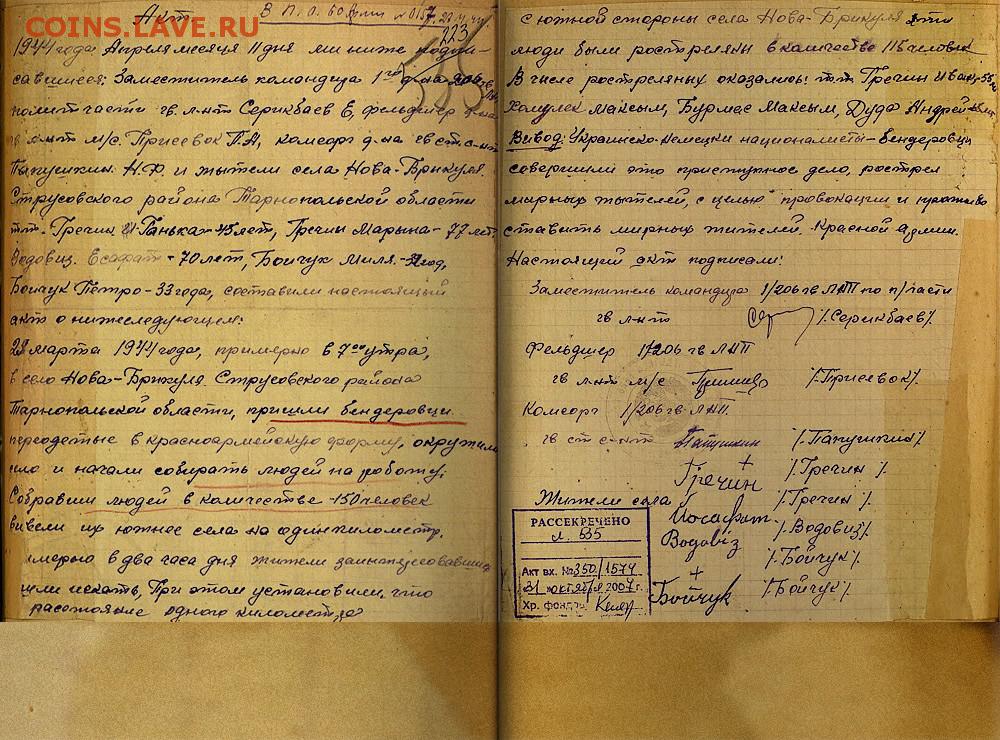 COINS.LAVE.RU
Акт В П.О. 60 Армии
223
1944 года Апреля месяца 11 дня мы ниже подпи-
савшиеся: Заместитель командира 1го д-на 206 гв.
политчасти гв. л-нт Серикбаев Е, фельдшер д-на
гв л-нт м/с. Присевок П.А, комсорг д-на гв ст с-нт
Папушкин Н.Ф. и жытели села Нова-Брикуля
Струсовского района Тарнопольской области
т.т. Гречин Ганька-45 лет, Гречин Марына-77 лет,
Водовиз Есафат-70 лет, Бойчук Миля- год,
Бойчук Петро-33 года, составили настоящий
акт о нижеследующем:
марта 1944 года, примерно в 7 00 утра,
в село Нова-Брикуля Струсовского района
Тарнопольской области, пришли бендеровцы
переодетые в красноармейскую форму, окружили
село и начали собирать людей на работу.
Собравши людей в количестве -150 человек
вывели их южнее села на один километр.
имерно в два часа дня жители заинтересовавшись
шли искать, При этом установили, что
расстояние одного километра
с южной стороны села Нова-Брикуля эти
люди были ростреляны в количестве 115 человек
В числе ростреляных оказались: тт Гречин Иван-55
Хомулек Максым, Бурмас Максым, Дуда Андрей
Вывод: Украинско-Немецки националисты-Бендеровцы
совершили это приступное дело, рострел
мирных жытелей, с целью провокации и противо
ставить мирных жителей. Красной армии.
Настоящий акт подписали:
Заместитель командира 1/206 гв ЛАП по п/части
гв л-нт /.Серикбаев/.
Фельдшер 1/206 гв ЛАП
гв л-нт м/с /.Присевок/.
Комсорг 1/206 гв ЛАП.
гв ст с-нт Папушкин /.Папушкин/.
+
Гречин /.Гречин /.
Жители села /.Гречин /.
Йосафат
Водовіз /.Водовиз/.
+ /.Бойчук/.
Бойчук /.Бойчук/.
РАССЕКРЕЧЕНО
л. 535
Акт вх. № 350/1574
31 октября 2007 г.
Хр. фонд